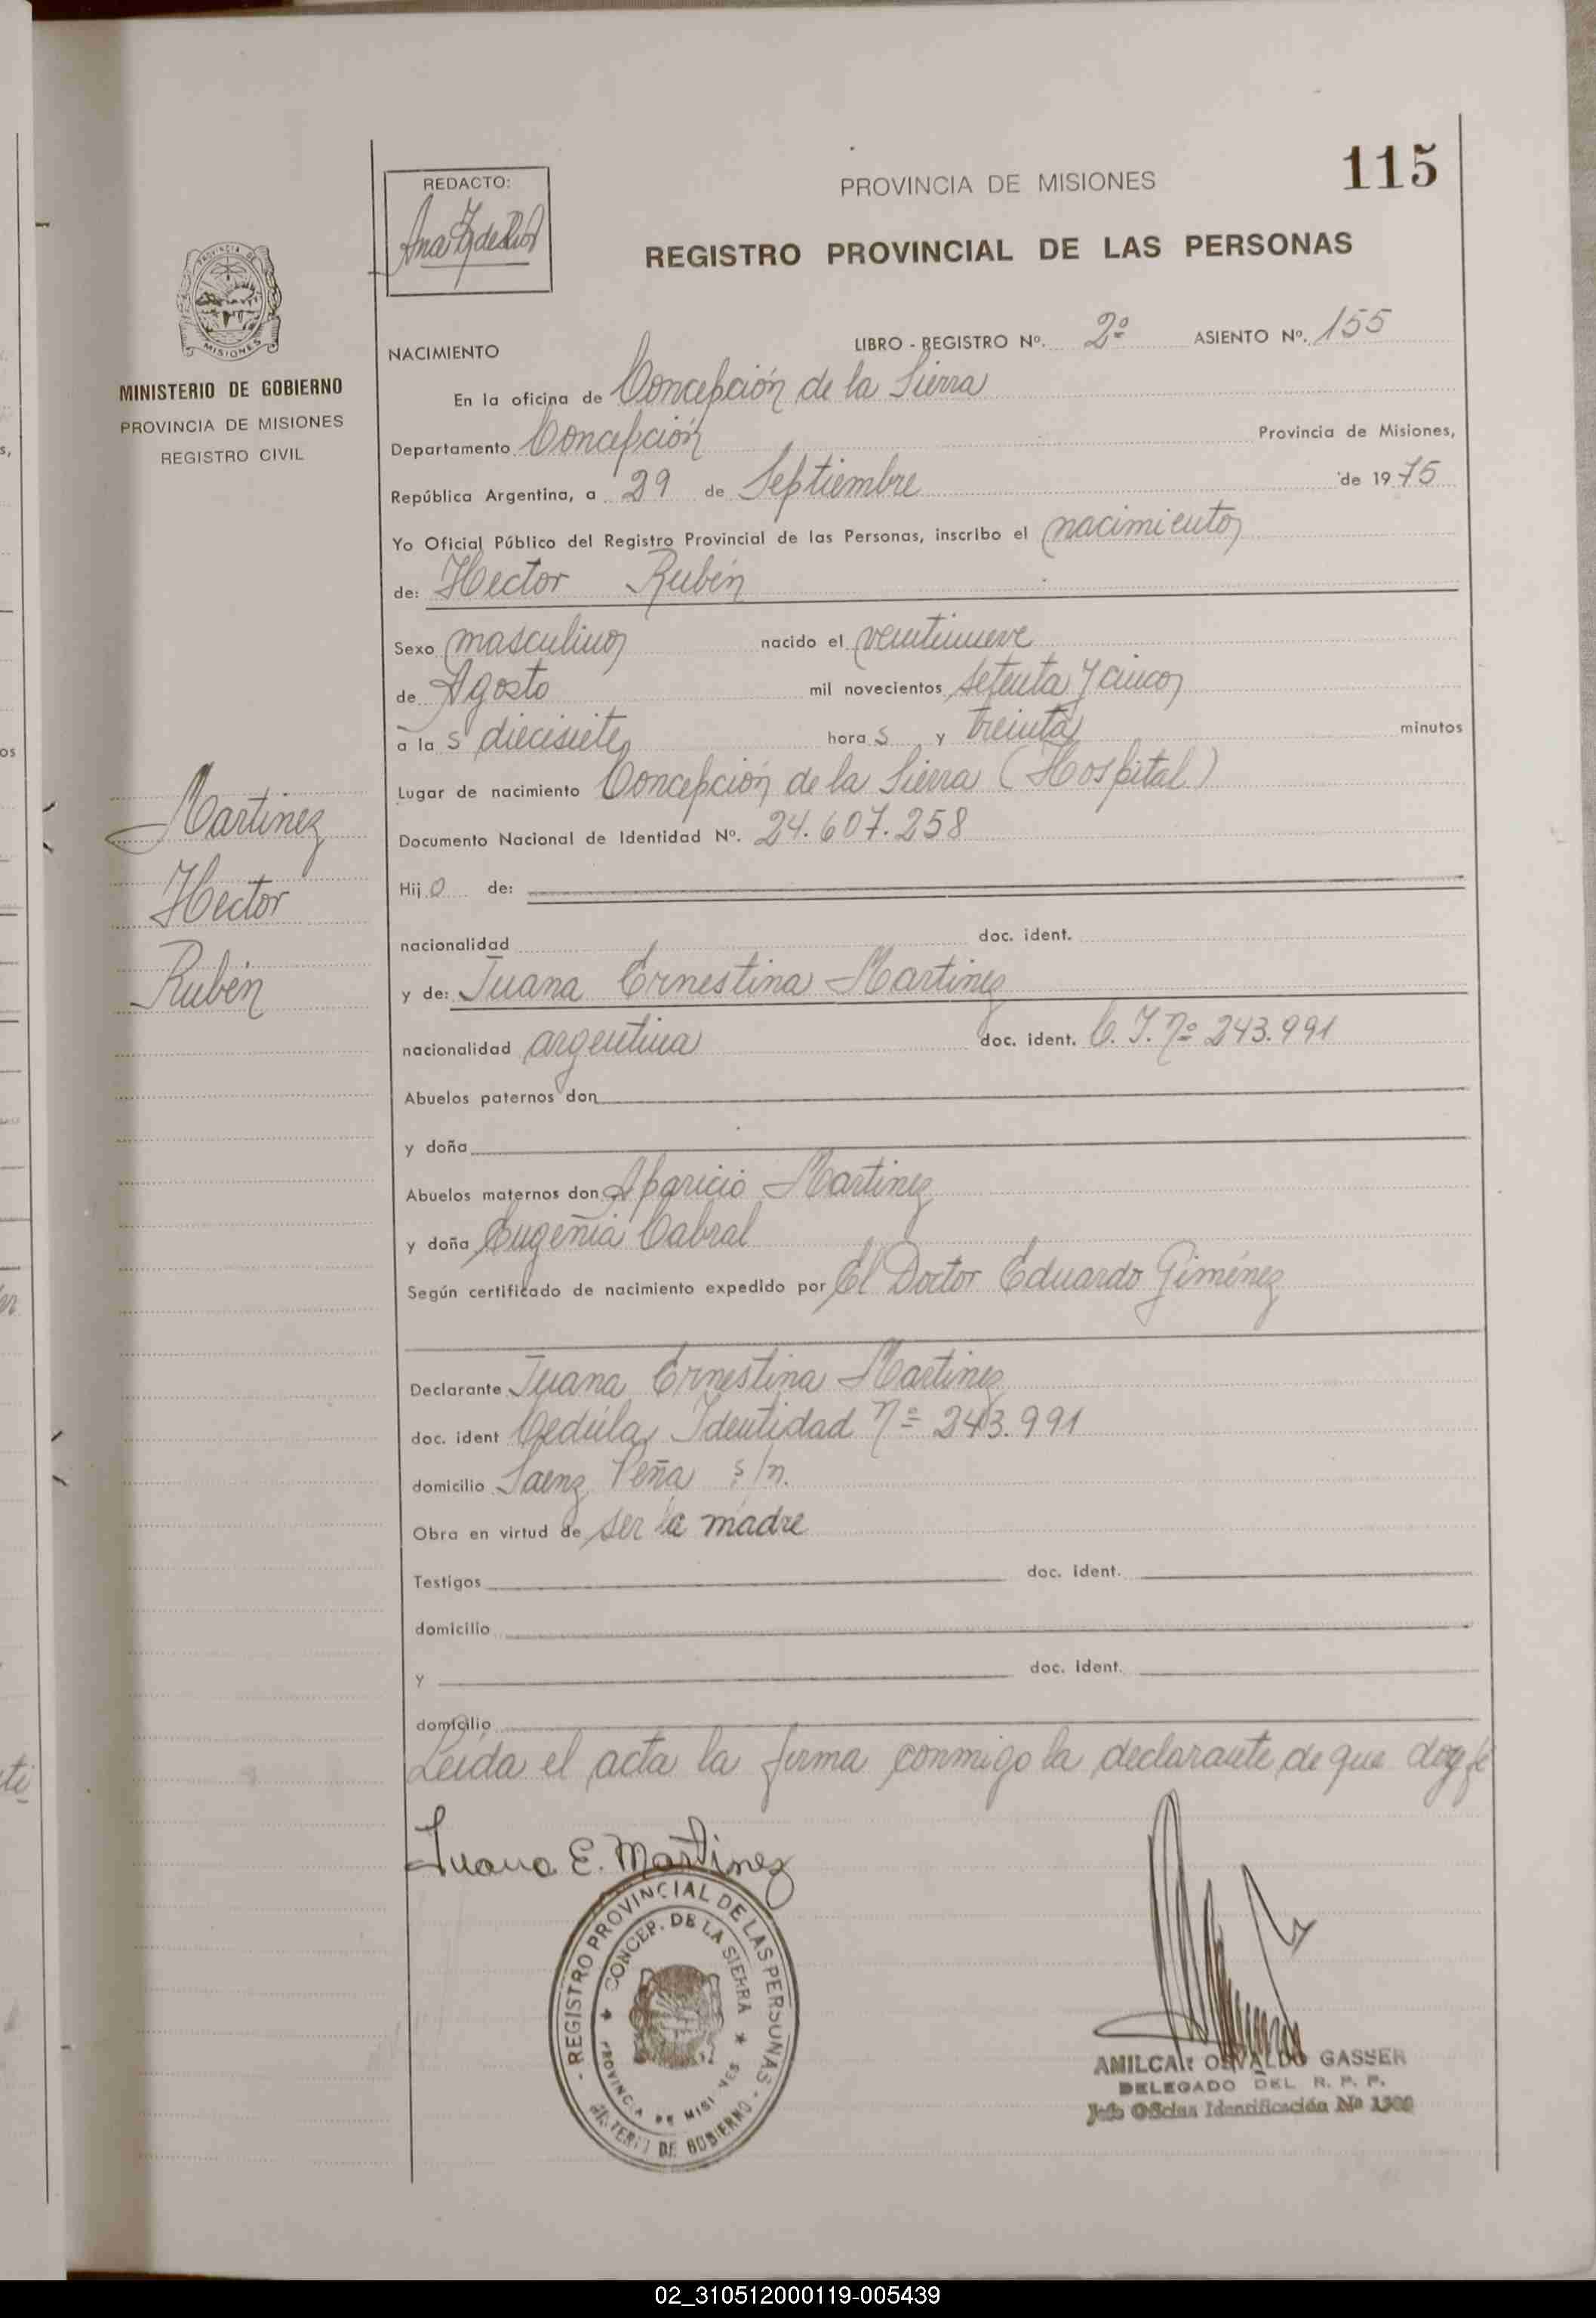 115
REDACTO:
PROVINCIA DE MISIONES
REGISTRO PROVINCIAL DE LAS PERSONAS
MISIONES
MINISTERIO DE GOBIERNO
PROVINCIA DE MISIONES
REGISTRO CIVIL
LIBRO - REGISTRO Nº. 2º ASIENTO Nº. 155
NACIMIENTO
En la oficina de Concepción de la Sierra
Departamento Concepción Provincia de Misiones,
República Argentina, a 29 de Septiembre de 1975
Yo Oficial Público del Registro Provincial de las Personas, inscribo el nacimiento
de: Hector Rubén
Sexo masculino nacido el veintinueve
de Agosto mil novecientos setenta y cinco
a las diecisiete horas y treinta minutos
Lugar de nacimiento Concepción de la Sierra (Hospital)
Martinez
Hector
Rubén
Documento Nacional de Identidad Nº. 24.607.258
Hijo de:
nacionalidad doc. ident.
y de: Juana Ernestina Martinez
nacionalidad argentina doc. ident. C. I. nº 243.991
Abuelos paternos don
y doña
Abuelos maternos don Aparicio Martinez
y doña Eugenia Cabral
Según certificado de nacimiento expedido por El Doctor Eduardo Giménez
Declarante Juana Ernestina Martinez
doc. ident Cedúla Identidad nº 243.991
domicilio Saenz Peña s/n.
Obra en virtud de ser la madre
Testigos doc. ident.
domicilio
y doc. ident.
domicilio
Leida el acta la firma conmigo la declarante de que doy fé
Juana E. Martinez
- REGISTRO PROVINCIAL DE LAS PERSONAS -
CONCEP. DE LA SIERRA
PROVINCIA DE MISIONES
MINISTERIO DE GOBIERNO
AMILCAR OSVALDO GASSER
DELEGADO DEL R. P. P.
Jefe Oficina Identificación Nº 1300
02_310512000119-005439